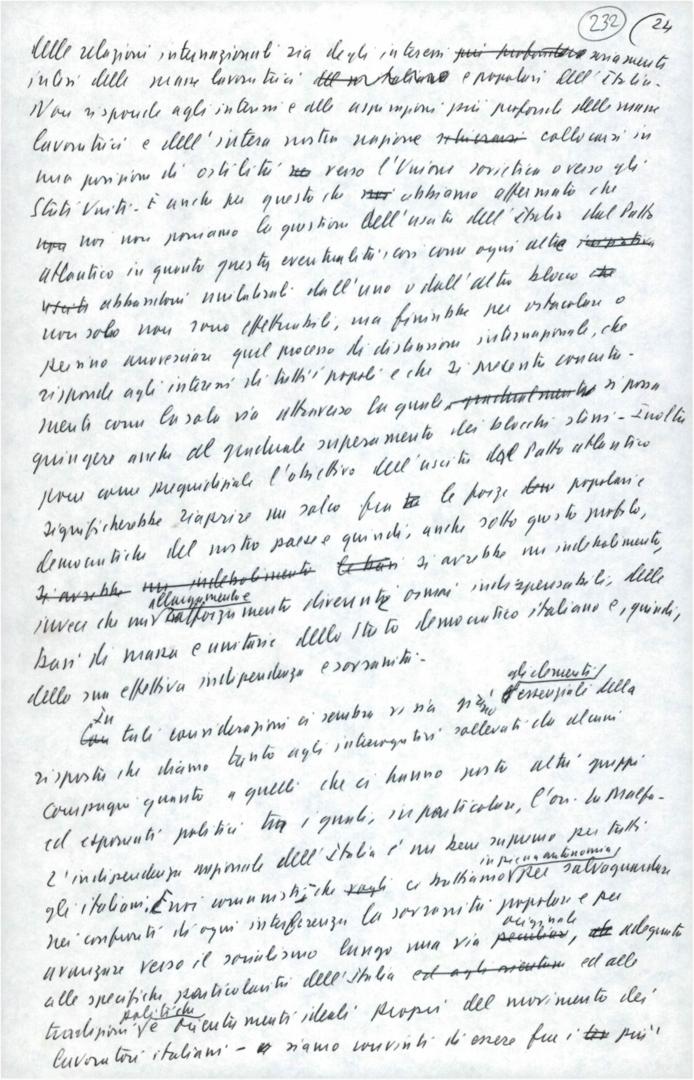 232 24
delle relazioni internazionali sia degli interessi più profondi seriamente
intesi delle masse lavoratrici italiane e popolari dell'Italia.
Non risponde agli interessi e alle aspirazioni più profonde delle masse
lavoratrici e dell'intera nostra nazione schierarsi collocarsi in
una posizione di ostilità verso l'Unione sovietica o verso gli
Stati Uniti. È anche per questo che noi abbiamo affermato che
noi non poniamo la questione dell'uscita dell'Italia dal Patto
atlantico in quanto questa eventualità, così come ogni altra
abbandoni unilaterali dall'uno o dall'altro blocco
non solo non sono effettuabili, ma finirebbe per ostacolare o
persino rovesciare quel processo di distensione internazionale, che
risponde agli interessi di tutti i popoli e che si presenta concreta-
mente come la sola via attraverso la quale, gradualmente si possa
giungere anche al graduale superamento dei blocchi stessi. Inoltre
porre come pregiudiziale l'obiettivo dell'uscita dal Patto atlantico
significherebbe riaprire un solco fra le forze popolari e
democratiche del nostro paese e quindi, anche sotto questo profilo,
si avrebbe un indebolimento le basi si avrebbe un indebolimento,
invece che un allargamento e rafforzamento divenuti ormai indispensabili, delle
basi di massa e unitarie dello Stato democratico italiano e, quindi,
della sua effettiva indipendenza e sovranità.
In tali considerazioni ci sembra vi sia già gli elementi essenziali della
risposta che diamo tanto agli interrogativi sollevati da alcuni
compagni quanto a quelli che ci hanno posto altri gruppi
ed esponenti politici tra i quali, in particolare, l'on. La Malfa.
L'indipendenza nazionale dell'Italia è un bene supremo per tutti
gli italiani. E noi comunisti, che ci battiamo in piena autonomia per salvaguardare
nei confronti di ogni interferenza la sovranità popolare e per
avanzare verso il socialismo lungo una via peculiare originale, adeguata
alle specifiche particolarità dell'Italia ed agli orientam ed alle
tradizioni politiche e orientamenti ideali propri del movimento dei
lavoratori italiani – siamo convinti di essere fra i più